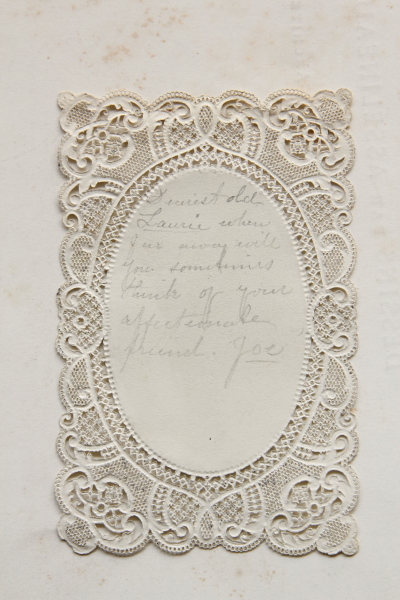 Dearest old
Laurie when
far away will
you sometimes
think of your
affectionate
friend. Joe